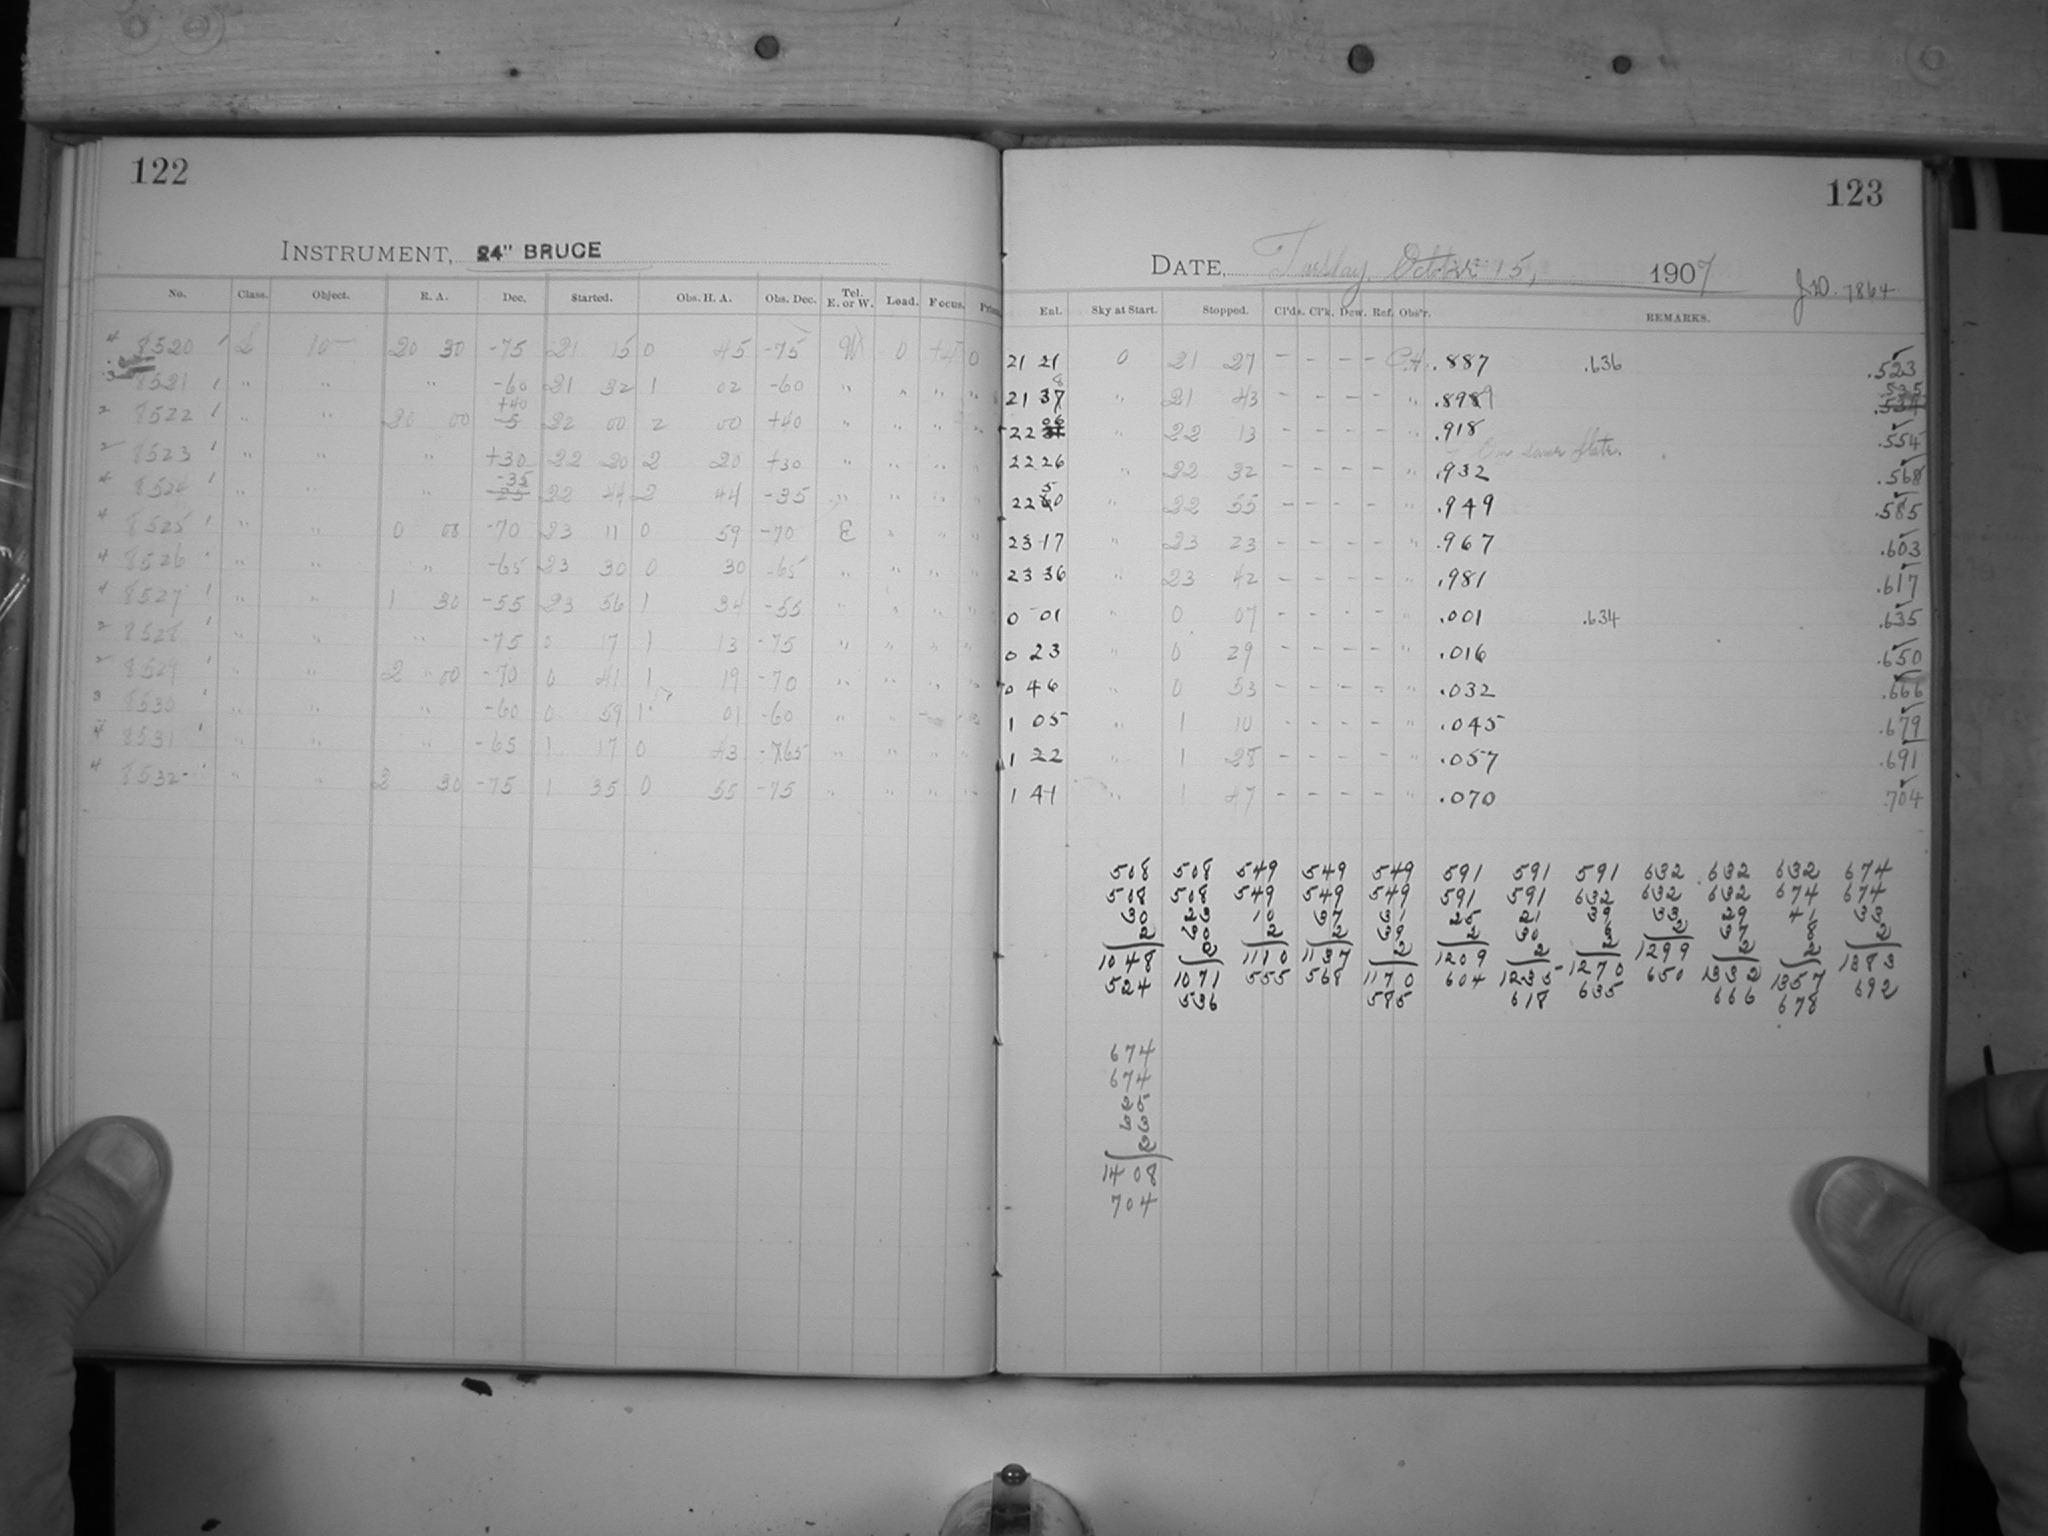 122
INSTRUMENT, 24" BRUCE
No. Class. Object. R. A. Dec. Started. Obs. H. A. Obs. Dec. Tel. E. or W. Load. Focus.
4 8520 1 L 10 20 30 -75 21 15 0 45 -75 W 0 +4 0
3 8521 1 " " " -60 21 32 1 02 -60 " " " "
2 8522 1 " " 20 00 +40 -5 22 00 2 00 +40 " " " "
2 8523 1 " " " +30 22 20 2 20 +30 " " " "
4 8524 1 " " " -35 -25 22 44 2 44 -35 " " " "
4 8525 1 " " 0 08 -70 23 11 0 59 -70 E " " "
4 8526 " " " -65 23 30 0 30 -65 " " " "
4 8527 1 " " 1 30 -55 23 56 1 34 -55 " " " "
2 8528 1 " " " -75 0 17 1 13 -75 " " " "
2 8529 1 " " 2 00 -70 0 41 1 19 -70 " " " "
3 8530 " " " -60 0 59 1 01 -60 " "
4 8531 1 " " " -65 1 17 0 43 -65 " " " "
4 8532 " " 2 30 -75 1 35 0 55 -75 " " " "
123
DATE, Tuesday, October 15, 1907
JD. 7864
Ent. Sky at Start. Stopped. Cl'ds. Cl'k. Dew. Ref. Obs'r. REMARKS.
21 21 0 21 27 - - - - C.H. .887 .636 .523
21 38 " 21 43 - - - - " .899 .535 .534
22 06 " 22 13 - - - - " .918 .554
On same plate.
22 26 " 22 32 - - - - " .932 .568
22 50 " 22 55 - - - - " .949 .585
23 17 " 23 23 - - - - " .967 .603
23 36 " 23 42 - - - - " .981 .617
0 01 " 0 07 - - - - " .001 .634 .635
0 23 " 0 29 - - - - " .016 .650
0 46 " 0 53 - - - - " .032 .666
1 05 " 1 10 - - - - " .045 .679
1 22 " 1 28 - - - - " .057 .691
1 41 " 1 47 - - - - " .070 .704
508 508 549 549 549 591 591 591 632 632 632 674
508 508 549 549 549 591 591 632 632 632 674 674
30 23 10 37 31 25 21 39 33 29 41 33
2 30 2 2 39 2 30 8 2 37 8 2
2 2 2 2 2
1048 1071 1110 1137 1170 1209 1235 1270 1299 1332 1357 1383
524 536 555 568 585 604 618 635 650 666 678 692
674
674
25
33
2
1408
704